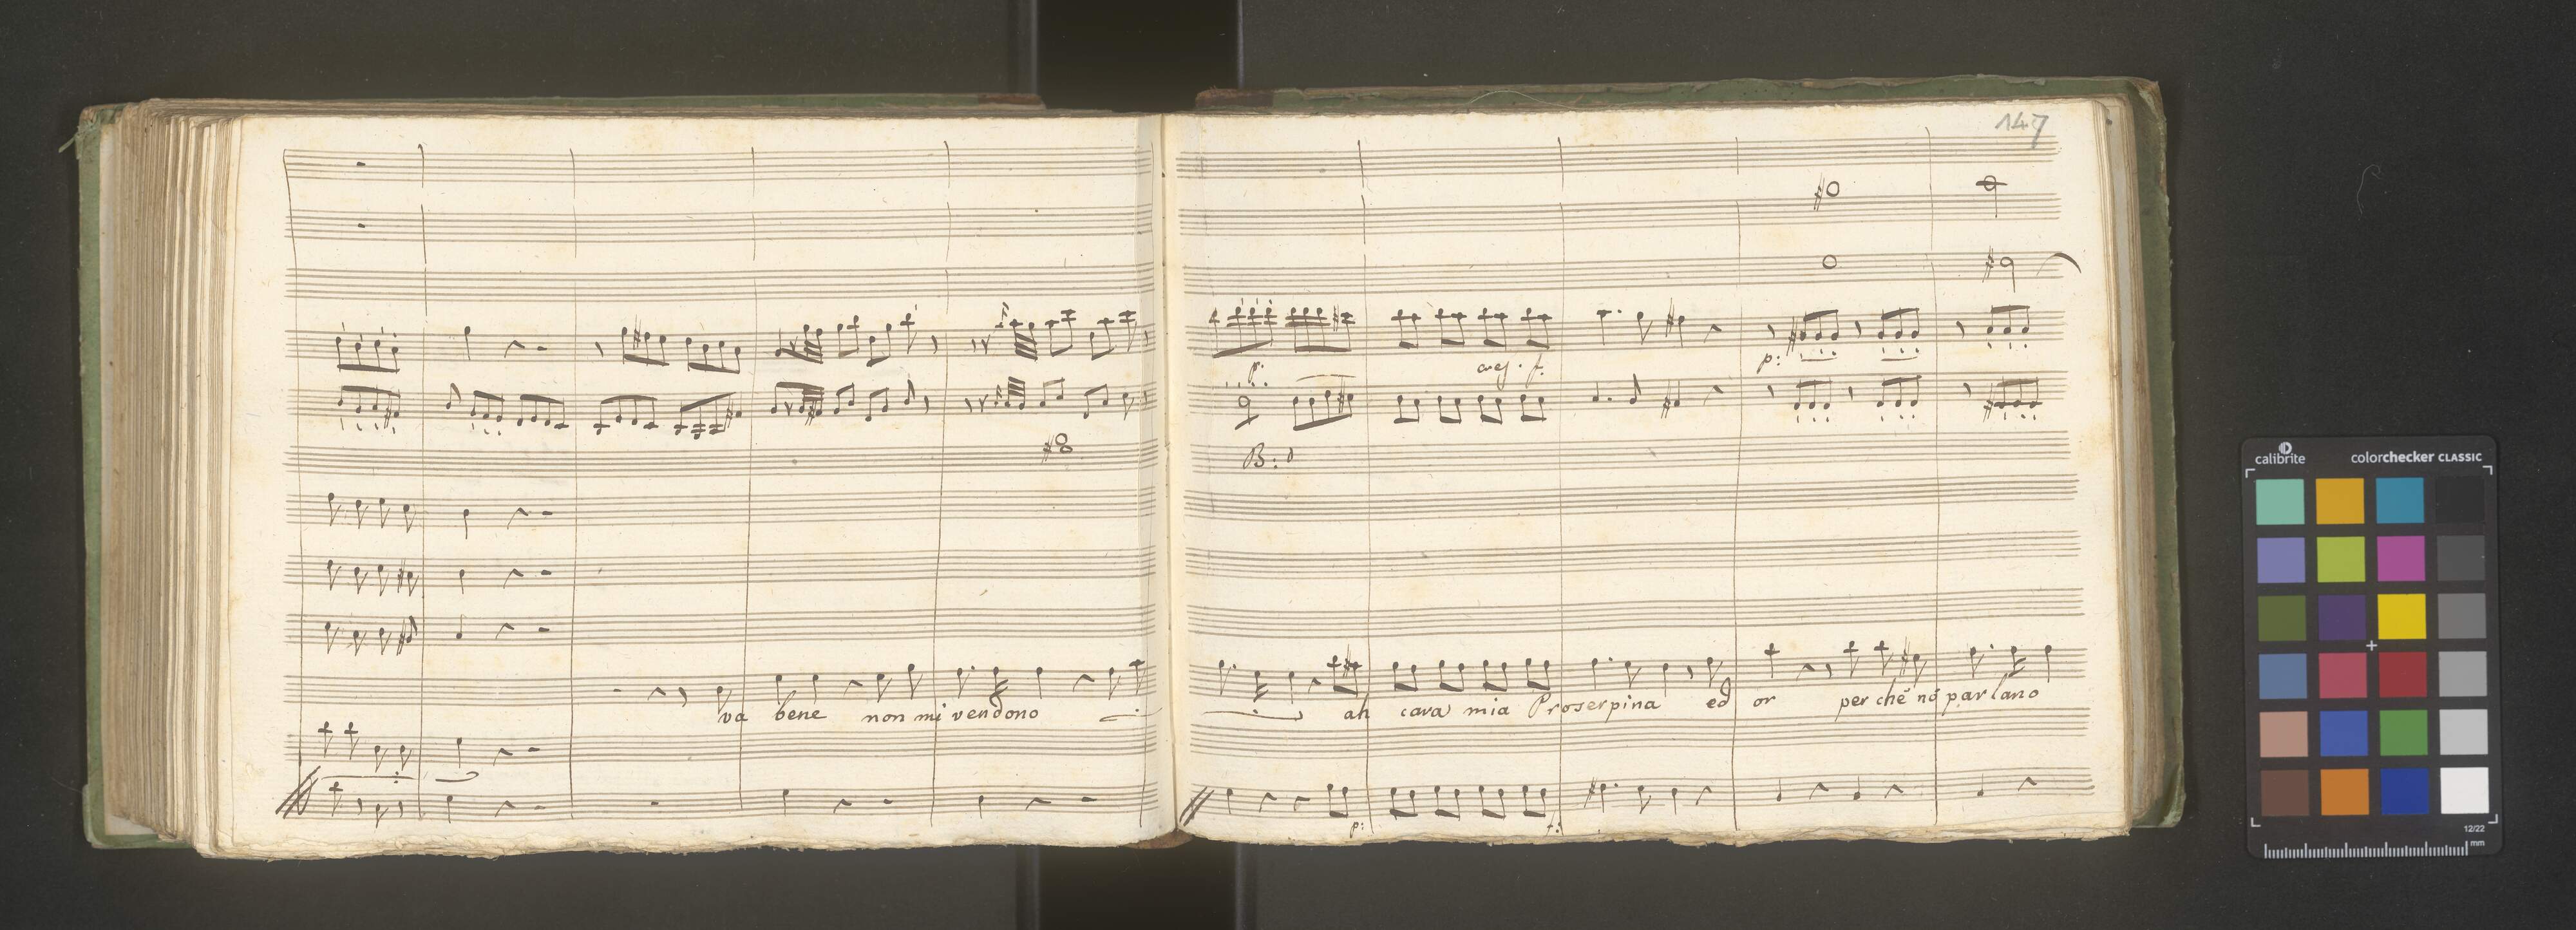 147
cresc. f:
p:
p:
B:
va bene non mi vendono
ah cara mia Proserpina ed or perchè nõ parlano
p: f:
calibrite colorchecker CLASSIC
12/22
mm